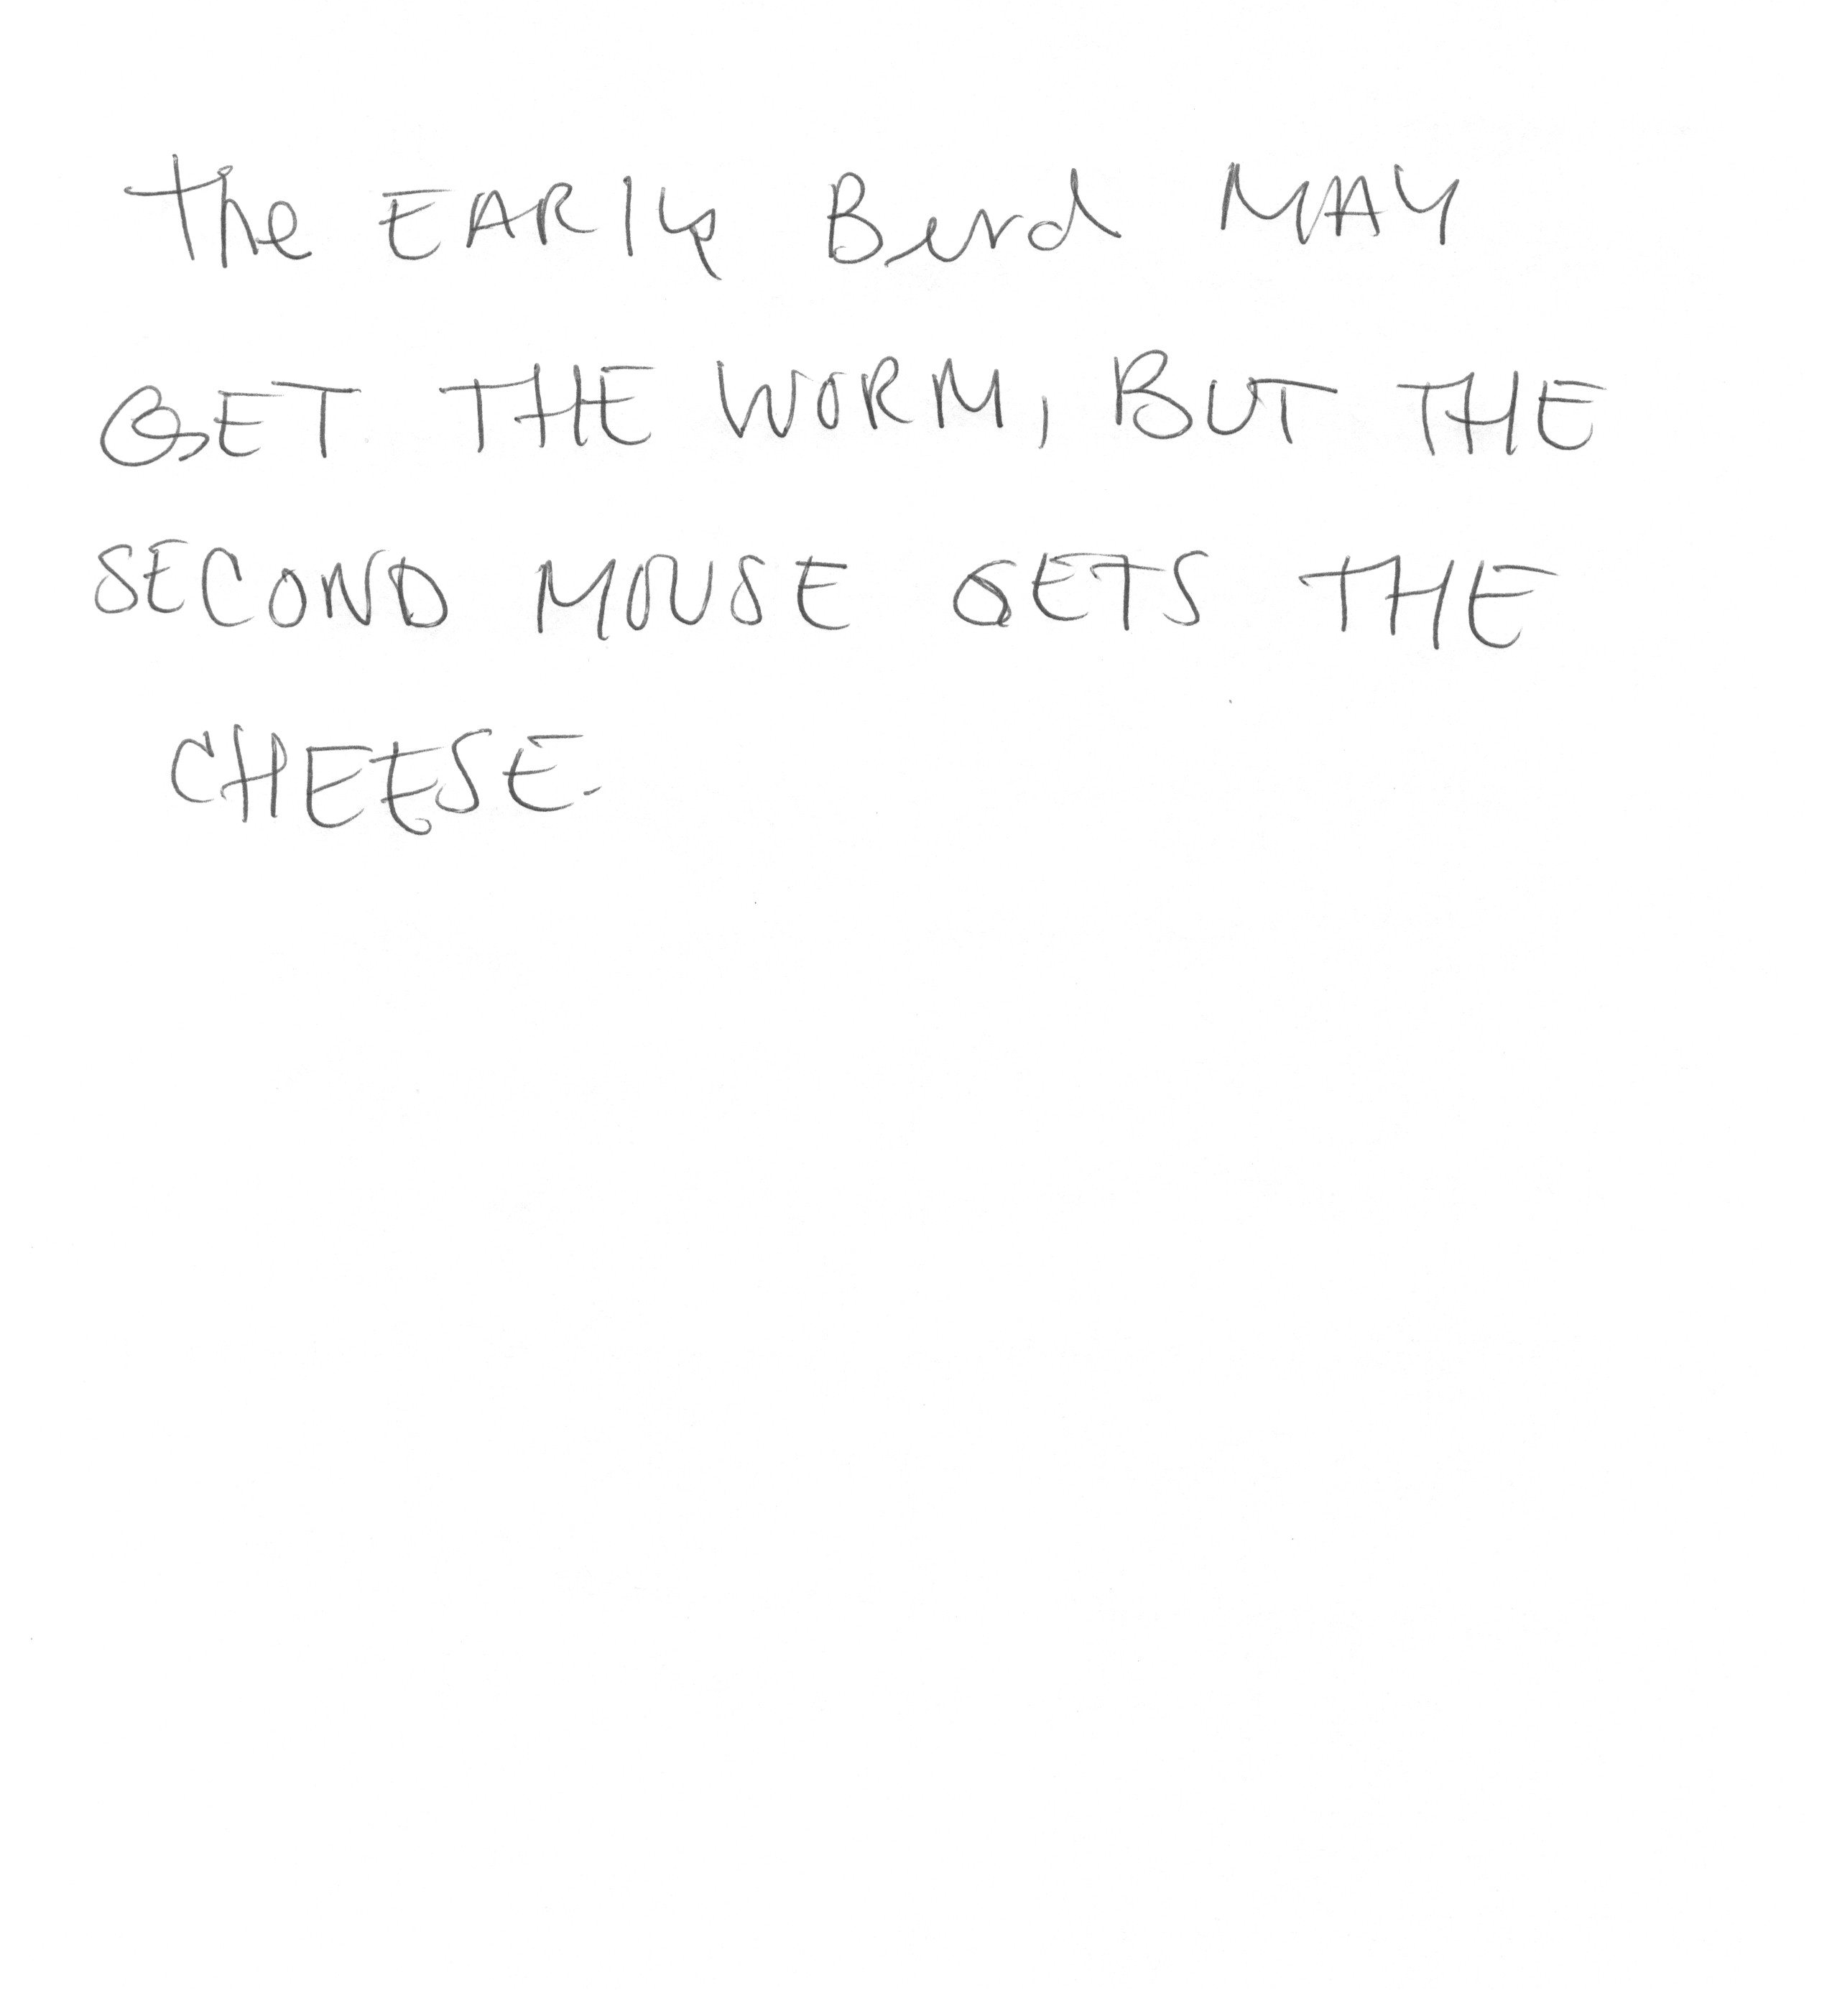 The EARly Bird MAY
GET THE WORM, BUT THE
SECOND MOUSE GETS THE
CHEESE.